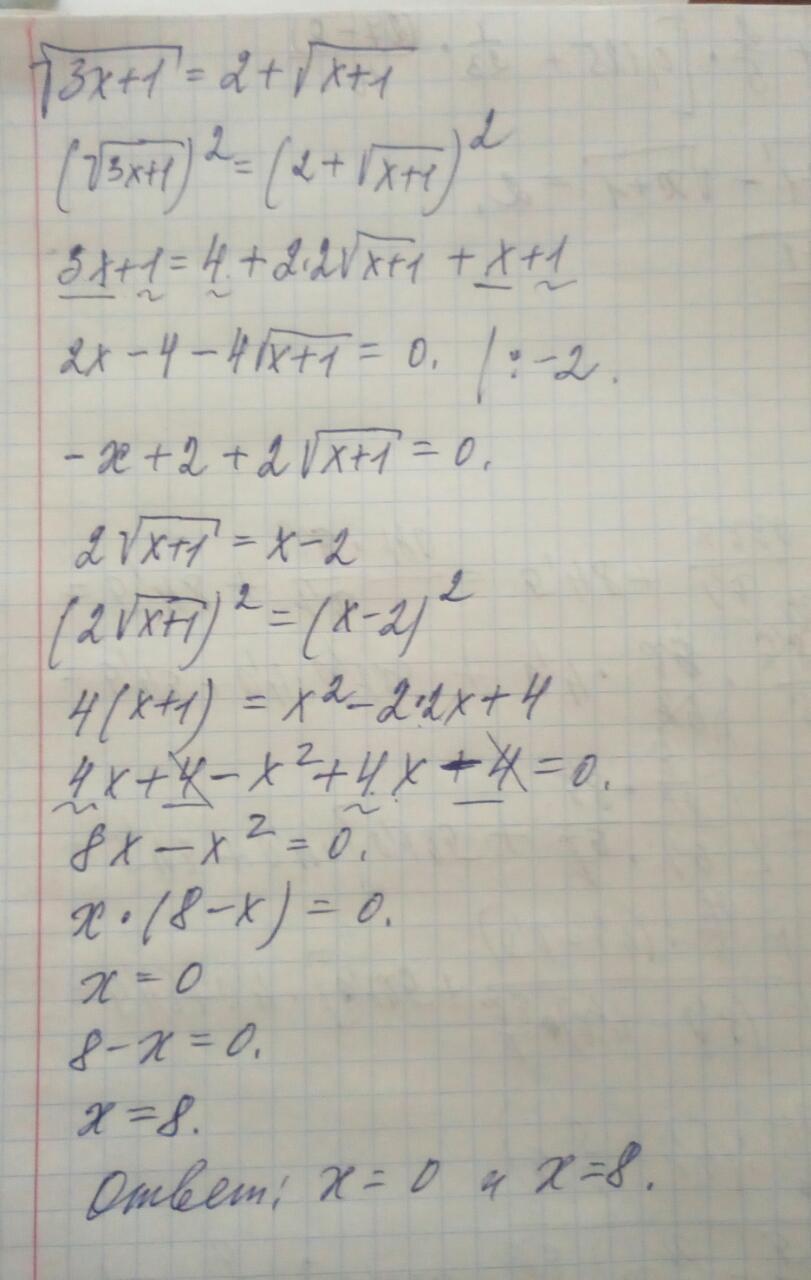 √3x+1 = 2 + √x+1
(√3x+1)² = (2 + √x+1)²
3x+1 = 4 + 2·2√x+1 + x+1
2x − 4 − 4√x+1 = 0. | : −2.
-x + 2 + 2√x+1 = 0.
2√x+1 = x−2
(2√x+1)² = (x−2)²
4(x+1) = x² − 2·2x + 4
4x + 4 − x² + 4x − 4 = 0.
8x − x² = 0.
x · (8 − x) = 0.
x = 0
8 − x = 0.
x = 8.
Ответ: x = 0 и x = 8.